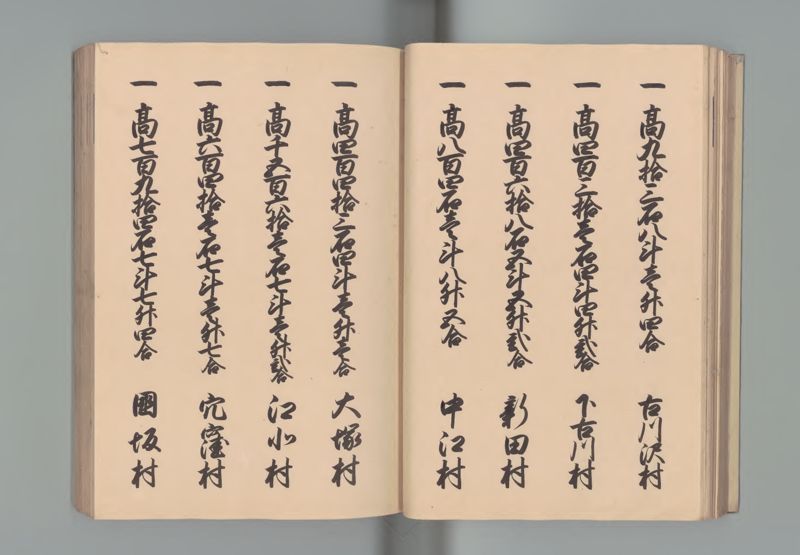 一 高九拾三石八斗壱升四合 古川沢村
一 高四百三拾壱石四斗四升弐合 下古川村
一 高四百六拾八石五斗五升弐合 新田村
一 高八百四石壱斗八升五合 中江村
一 高四百四拾三石四斗壱升壱合 大塚村
一 高千五百六拾壱石七斗壱升弐合 江北村
一 高六百四拾壱石七斗壱升七合 穴窪村
一 高七百九拾四石七斗七升四合 國坂村